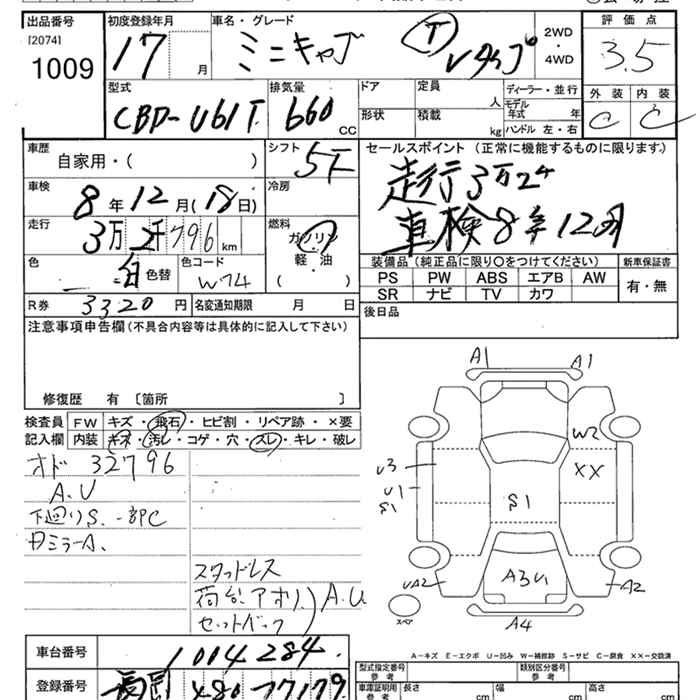 出品番号
[2074]
1009
初度登録年月
17 月
車名・グレード
ミニキャブ Ⓣ Vタップ
2WD
・
4WD
評価点
3.5
外装 内装
C C
型式
CBD-U61T
排気量
660 CC
ドア
定員 人
形状
積載 kg
ディーラー・並行
モデル年式 年
ハンドル 左・右
車歴
自家用・( )
シフト
5F
セールスポイント (正常に機能するものに限ります。)
走行3万2千
車検8年12月
車検
8年12月(18日)
冷房
走行
3万2千796km
燃料
ガソリン
・
軽・油
( )
色
白 色替
色コード
W74
装備品 (純正品に限り〇をつけてください)
PS PW ABS エアB AW
SR ナビ TV カワ
新車保証書
有・無
R券 3320円
名変通知期限 月 日
後日品
注意事項申告欄 (不具合内容等は具体的に記入して下さい)
修復歴 有 〔箇所 〕
検査員記入欄
FW キズ・飛石・ヒビ割・リペア跡・×要
内装 キズ・汚レ・コゲ・穴・スレ・キレ・破レ
オド 32796
A.U
下廻りS. 一部PC
Dミラー A.
スタッドレス
荷台アオリ.) A.U
セットバック
A1 A1
W2
U3
XX
U1
S1
S1
UA2
A3U1
A2
A4
スペア
A-キズ E-エクボ U-凹み W-補修跡 S-サビ C-腐食 XX-交換済
車台番号
1004284
登録番号
長岡 480 77179
型式指定番号
参考
類別区分番号
参考
車庫証明用
参考
長さ cm
幅 cm
高さ cm